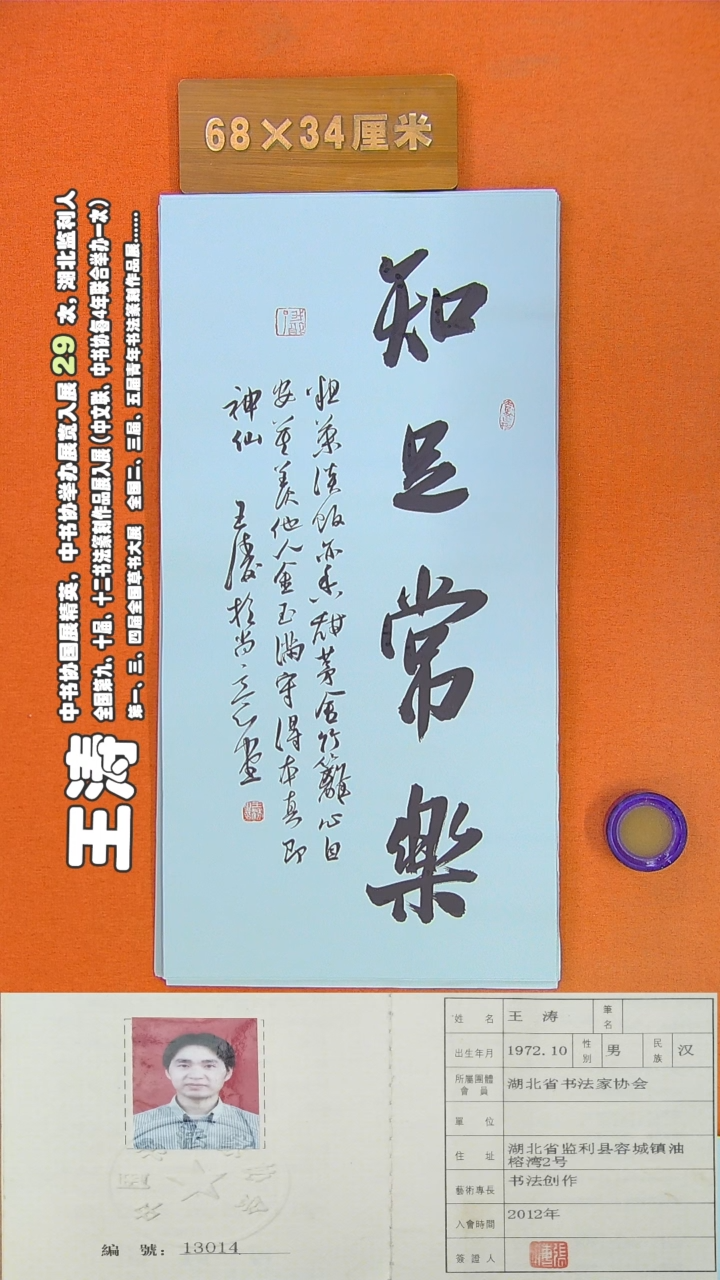 68×34厘米
知足常樂
粗茶淡飯亦香甜茅舍竹籬心自
安莫羨他人金玉滿守得本真即
神仙 王涛於尚
王涛
中书协国展精英，中书协举办展赛入展 29 次，湖北监利人
全国第九、十届、十二书法篆刻作品展入展（中文联、中书协每4年联合举办一次）
第一、三、四届全国草书大展 全国二、三届、五届青年书法篆刻作品展......
姓名 王涛 筆名
出生年月 1972.10 性別 男 民族 汉
所屬團體會員 湖北省书法家协会
單位
住址 湖北省监利县容城镇油榕湾2号
藝術專長 书法创作
入會時間 2012年
簽證人
編號：13014